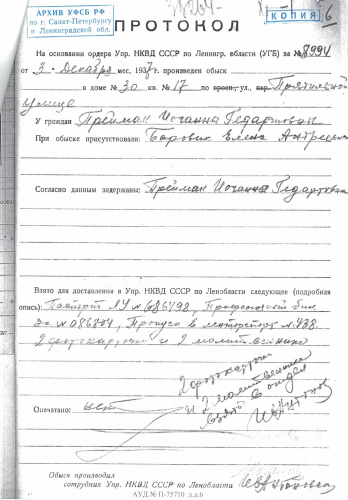 АРХИВ УФСБ РФ
по г. Санкт-Петербургу
и Ленинградской обл.
КОПИЯ
6
ПРОТОКОЛ
На основании ордера Упр. НКВД СССР по Ленингр. области (УГБ) за № 8994
от 3. Декабря мес. 1937 г. произведен обыск
в доме № 30 кв. № 17 по просп., ул., пер. Прядильной
улица
У граждан Прейман Иоганна Гедартовны
При обыске присутствовали: Боровик Елена Андреевна
Согласно данным задержаны: Прейман Иоганна Гедартовна
Взято для доставления в Упр. НКВД СССР по Ленобласти следующее (подробная
опись): Паспорт ЛУ № 686798, Професиональ бил
№ 086804, Пропуск в № 438
2 фотокарточки и 2 молитвенника
2 фотокарточки
и 2 молитвенника
взято в отдел
Опечатано: нет
Обыск производил
сотрудник Упр. НКВД СССР по Ленобласти
АУД № П-75710 л.д.6